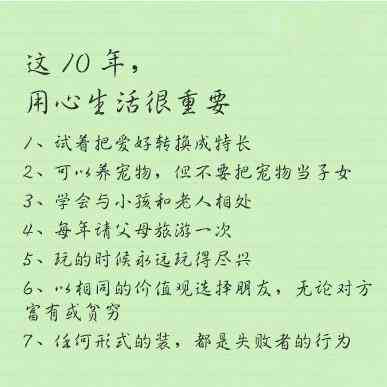 这10年，
用心生活很重要
1、试着把爱好转换成特长
2、可以养宠物，但不要把宠物当子女
3、学会与小孩和老人相处
4、每年请父母旅游一次
5、玩的时候永远玩得尽兴
6、以相同的价值观选择朋友，无论对方
富有或贫穷
7、任何形式的装，都是失败者的行为